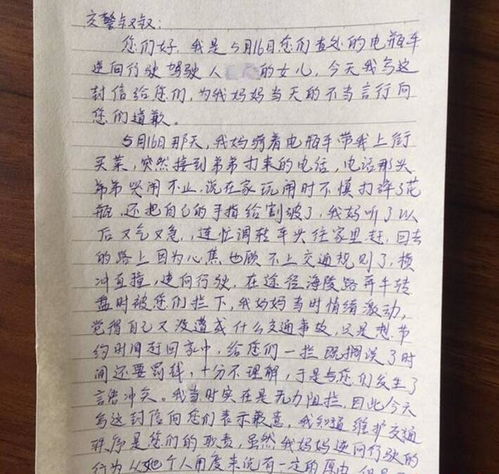 交警叔叔:
您们好,我是5月16日您们查处的电瓶车
逆向行驶驾驶人 的女儿,今天我写这
封信给您们,为我妈妈当天的不当言行向
您们道歉。
5月16日那天,我妈骑着电瓶车带我上街
买菜,突然接到弟弟打来的电话,电话那头
弟弟哭闹不止,说在家玩闹时不慎打碎了花
瓶,还把自己的手指给割破了,我妈听了以
后又气又急,连忙调转车头往家里赶,回去
的路上因为心焦也顾不上交通规则了,横
冲直撞,逆向行驶,在途径海陵路 转
盘时被您们拦下,我妈妈当时情绪激动,
觉得自己又没造成什么交通事故,只是想节
约时间赶回家中,给您们一拦既搁误了时
间还要罚钱,十分不理解,于是与您们发生了
言语冲突。我当时实在是无力阻拦。因此今天
写这封信向您们表示歉意,我知道维护交通
秩序是您们的职责,虽然我妈妈逆向行驶的
行为从她个人角度来说有一定的原因,